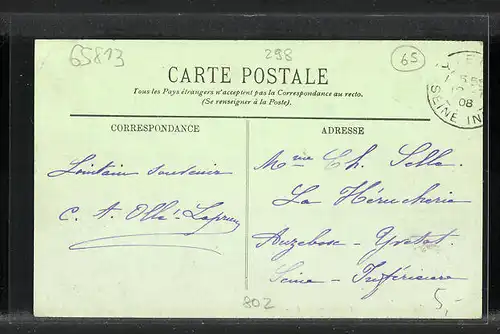 65813
298
65
CARTE POSTALE
Tous les Pays étrangers n'acceptent pas la Correspondance au recto.
(Se renseigner à la Poste).
08
SEINE IN
CORRESPONDANCE
ADRESSE
Lointain souvenir
C. A. Ollé-Laprun
Mme Ch. Selle
La Hérucherie
Auzebosc - Yvetot.
Seine - Inférieure
802
5,-